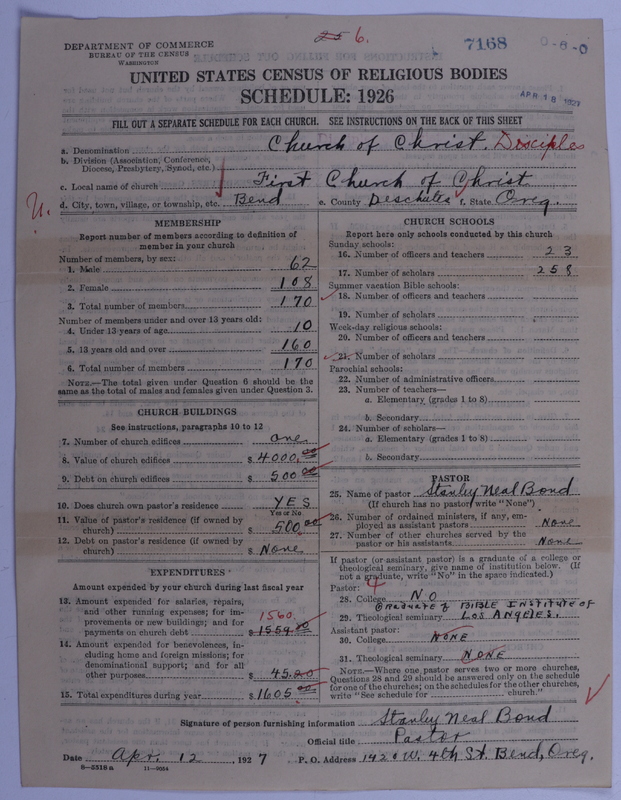 25 6.
7168
0-8-0
DEPARTMENT OF COMMERCE
BUREAU OF THE CENSUS
WASHINGTON
UNITED STATES CENSUS OF RELIGIOUS BODIES
SCHEDULE: 1926
APR 18 1927
FILL OUT A SEPARATE SCHEDULE FOR EACH CHURCH. SEE INSTRUCTIONS ON THE BACK OF THIS SHEET
a. Denomination Church of Christ. Disciples
b. Division (Association, Conference, Diocese, Presbytery, Synod, etc.)
c. Local name of church First Church of Christ
d. City, town, village, or township, etc. Bend e. County Deschutes f. State Oreg.
U.
MEMBERSHIP
Report number of members according to definition of
member in your church
Number of members, by sex:
1. Male 62
2. Female 108
3. Total number of members 170
Number of members under and over 13 years old:
4. Under 13 years of age 10
5. 13 years old and over 160
6. Total number of members 170
NOTE.—The total given under Question 6 should be the
same as the total of males and females given under Question 3.
CHURCH BUILDINGS
See instructions, paragraphs 10 to 12
7. Number of church edifices one
8. Value of church edifices $ 4000.00
9. Debt on church edifices $ 500.00
10. Does church own pastor's residence YES
Yes or No
11. Value of pastor's residence (if owned by
church) $ 500.00
12. Debt on pastor's residence (if owned by
church) $ None
EXPENDITURES
Amount expended by your church during last fiscal year
13. Amount expended for salaries, repairs,
and other running expenses; for im-
provements or new buildings; and for 1560
payments on church debt $ 1559.
14. Amount expended for benevolences, in-
cluding home and foreign missions; for
denominational support; and for all
other purposes $ 45.
15. Total expenditures during year $ 1605
CHURCH SCHOOLS
Report here only schools conducted by this church
Sunday schools:
16. Number of officers and teachers 23
17. Number of scholars 258
Summer vacation Bible schools:
18. Number of officers and teachers
19. Number of scholars
Week-day religious schools:
20. Number of officers and teachers
21. Number of scholars
Parochial schools:
22. Number of administrative officers
23. Number of teachers—
a. Elementary (grades 1 to 8)
b. Secondary
24. Number of scholars—
a. Elementary (grades 1 to 8)
b. Secondary
PASTOR
25. Name of pastor Stanley Neal Bond
(If church has no pastor, write "None")
26. Number of ordained ministers, if any, em-
ployed as assistant pastors None
27. Number of other churches served by the
pastor or his assistants None
If pastor (or assistant pastor) is a graduate of a college or
theological seminary, give name of institution below. (If
not a graduate, write "No" in the space indicated.)
Pastor: 4
28. College NO
GRADUATE of BIBLE INSTITUTE OF
29. Theological seminary LOS ANGELES.
Assistant pastor:
30. College NONE
31. Theological seminary NONE
NOTE.—Where one pastor serves two or more churches,
Questions 28 and 29 should be answered only on the schedule
for one of the churches; on the schedules for the other churches,
write "See schedule for church."
Signature of person furnishing information Stanley Neal Bond
Official title Pastor
Date Apr. 12 1927 P. O. Address 1420 W. 4th St. Bend, Oreg.
8—5518 a 11—9024